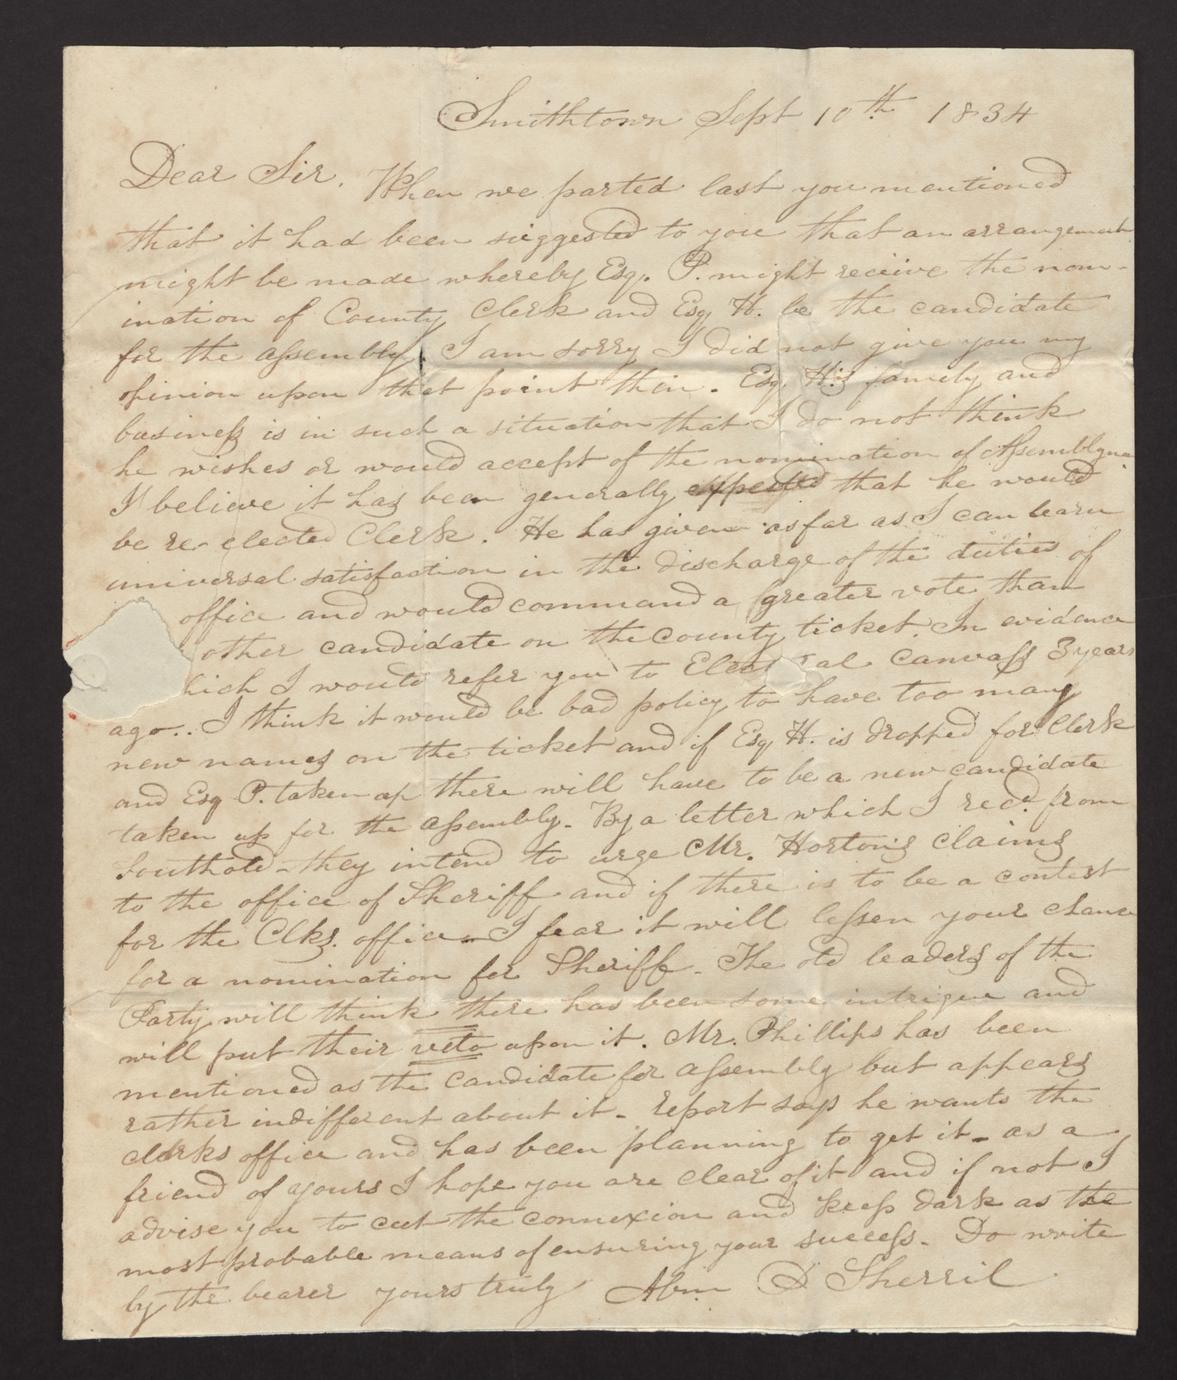 Smithtown Sept 10th 1834
Dear Sir. When we parted last you mentioned
that it had been suggested to you that an arrangement
might be made whereby Esq. P. might receive the nom-
ination of County Clerk and Esq. H. be the candidate
for the assembly, I am sorry I did not give you my
opinion upon that point then. Esq. H's family and
business is in such a situation that I do not think
he wishes or would accept of the nomination of Assemblyma
I believe it has been generally expected that he would
be re-elected Clerk. He has given as far as I can learn
universal satisfaction in the discharge of the duties of
office and would command a greater vote than
other candidate on the county ticket. In evidence
hich I would refer you to Elec al canvass 3 years
ago.. I think it would be bad policy to have too many
new names on the ticket and if Esq H. is dropped for Clerk
and Esq P. taken up there will have to be a new candidate
taken up for the assembly. By a letter which I recd. from
Southold - they intend to urge Mr. Horton's claims
to the office of Sheriff and if there is to be a contest
for the Clks. office - I fear it will lessen your chance
for a nomination for Sheriff. The old leaders of the
Party will think there has been some intrigue and
will put their veto upon it. Mr. Phillips has been
mentioned as the candidate for assembly but appears
rather indifferent about it - report says he wants the
clerks office and has been planning to get it - as a
friend of yours I hope you are clear of it and if not I
advise you to cut the connexion and keep dark as the
most probable means of ensuring your success. Do write
by the bearer yours truly Abm D Sherril